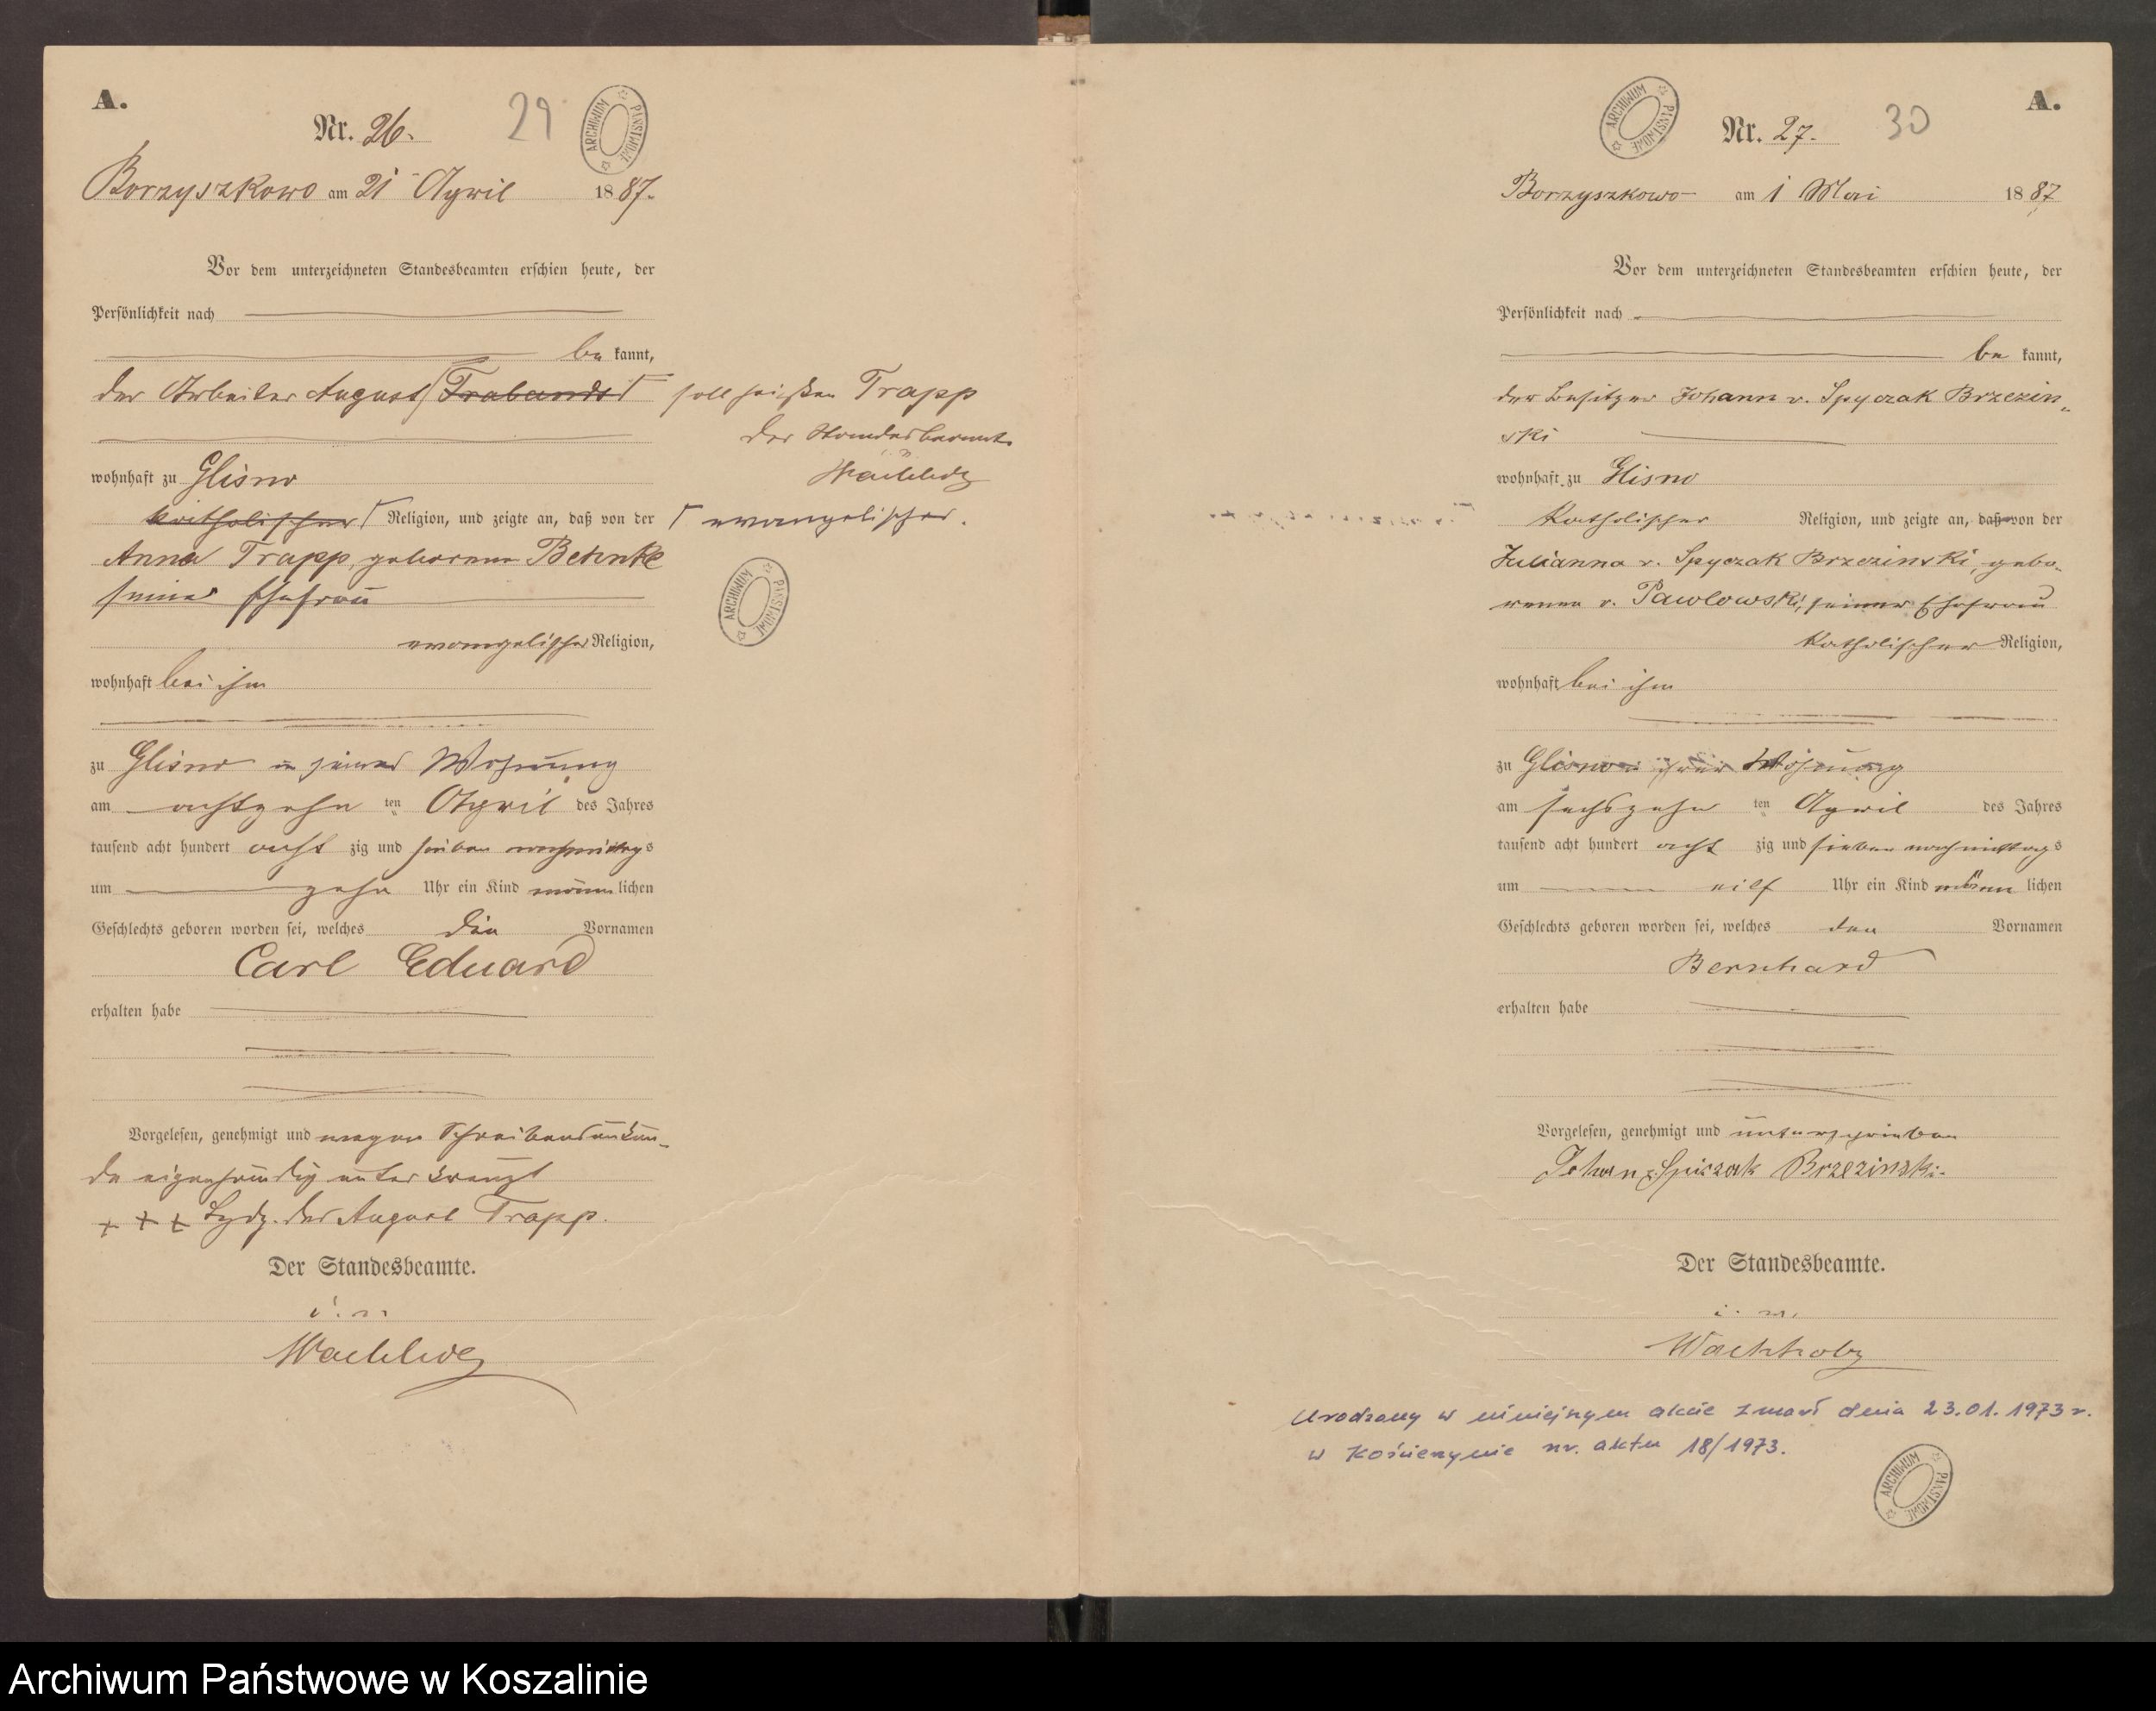 A.
Nr. 26.
29
ARCHIWUM PAŃSTWOWE
Borzyszkowo am 21 April 1887.
Vor dem unterzeichneten Standesbeamten erschien heute, der
Persönlichkeit nach
be kannt,
der Arbeiter August Trabandt soll heißen Trapp
Der Standesbeamte
wohnhaft zu Glisno
Wachholz
katholischer Religion, und zeigte an, daß von der evangelischer.
Anna Trapp, geborenen Behnke
seiner Ehefrau
ARCHIWUM PAŃSTWOWE
evangelischer Religion,
wohnhaft bei ihm
zu Glisno in seiner Wohnung
am achtzehn ten April des Jahres
tausend acht hundert acht zig und sieben nachmittags
um zehn Uhr ein Kind männlichen
Geschlechts geboren worden sei, welches die Vornamen
Carl Eduard
erhalten habe
Vorgelesen, genehmigt und wegen Schreibensunkun-
de eigenhändig unterkreuzt
+ + + Hdz. des August Trapp.
Der Standesbeamte.
Wachholz
A.
ARCHIWUM PAŃSTWOWE
Nr. 27.
30
Borzyszkowo am 1 Mai 1887
Vor dem unterzeichneten Standesbeamten erschien heute, der
Persönlichkeit nach
be kannt,
der Besitzer Johann v. Spyczak Brzezin-
ski
wohnhaft zu Glisno
katholischer Religion, und zeigte an, daß von der
Julianna v. Spyczak Brzezinski, gebo-
renen v. Pawlowski, seiner Ehefrau
katholischer Religion,
wohnhaft bei ihm
zu Glisno in ihrer Wohnung
am sechszehn ten April des Jahres
tausend acht hundert acht zig und sieben nachmittags
um eilf Uhr ein Kind männ lichen
Geschlechts geboren worden sei, welches den Vornamen
Bernhard
erhalten habe
Vorgelesen, genehmigt und unterschrieben
Johan v. Spiczak Brzezinski.
Der Standesbeamte.
Wachholz
Urodzony w niniejszym akcie zmarł dnia 23.01.1973 r.
w Kościerzynie nr. aktu 18/1973.
ARCHIWUM PAŃSTWOWE
Archiwum Państwowe w Koszalinie